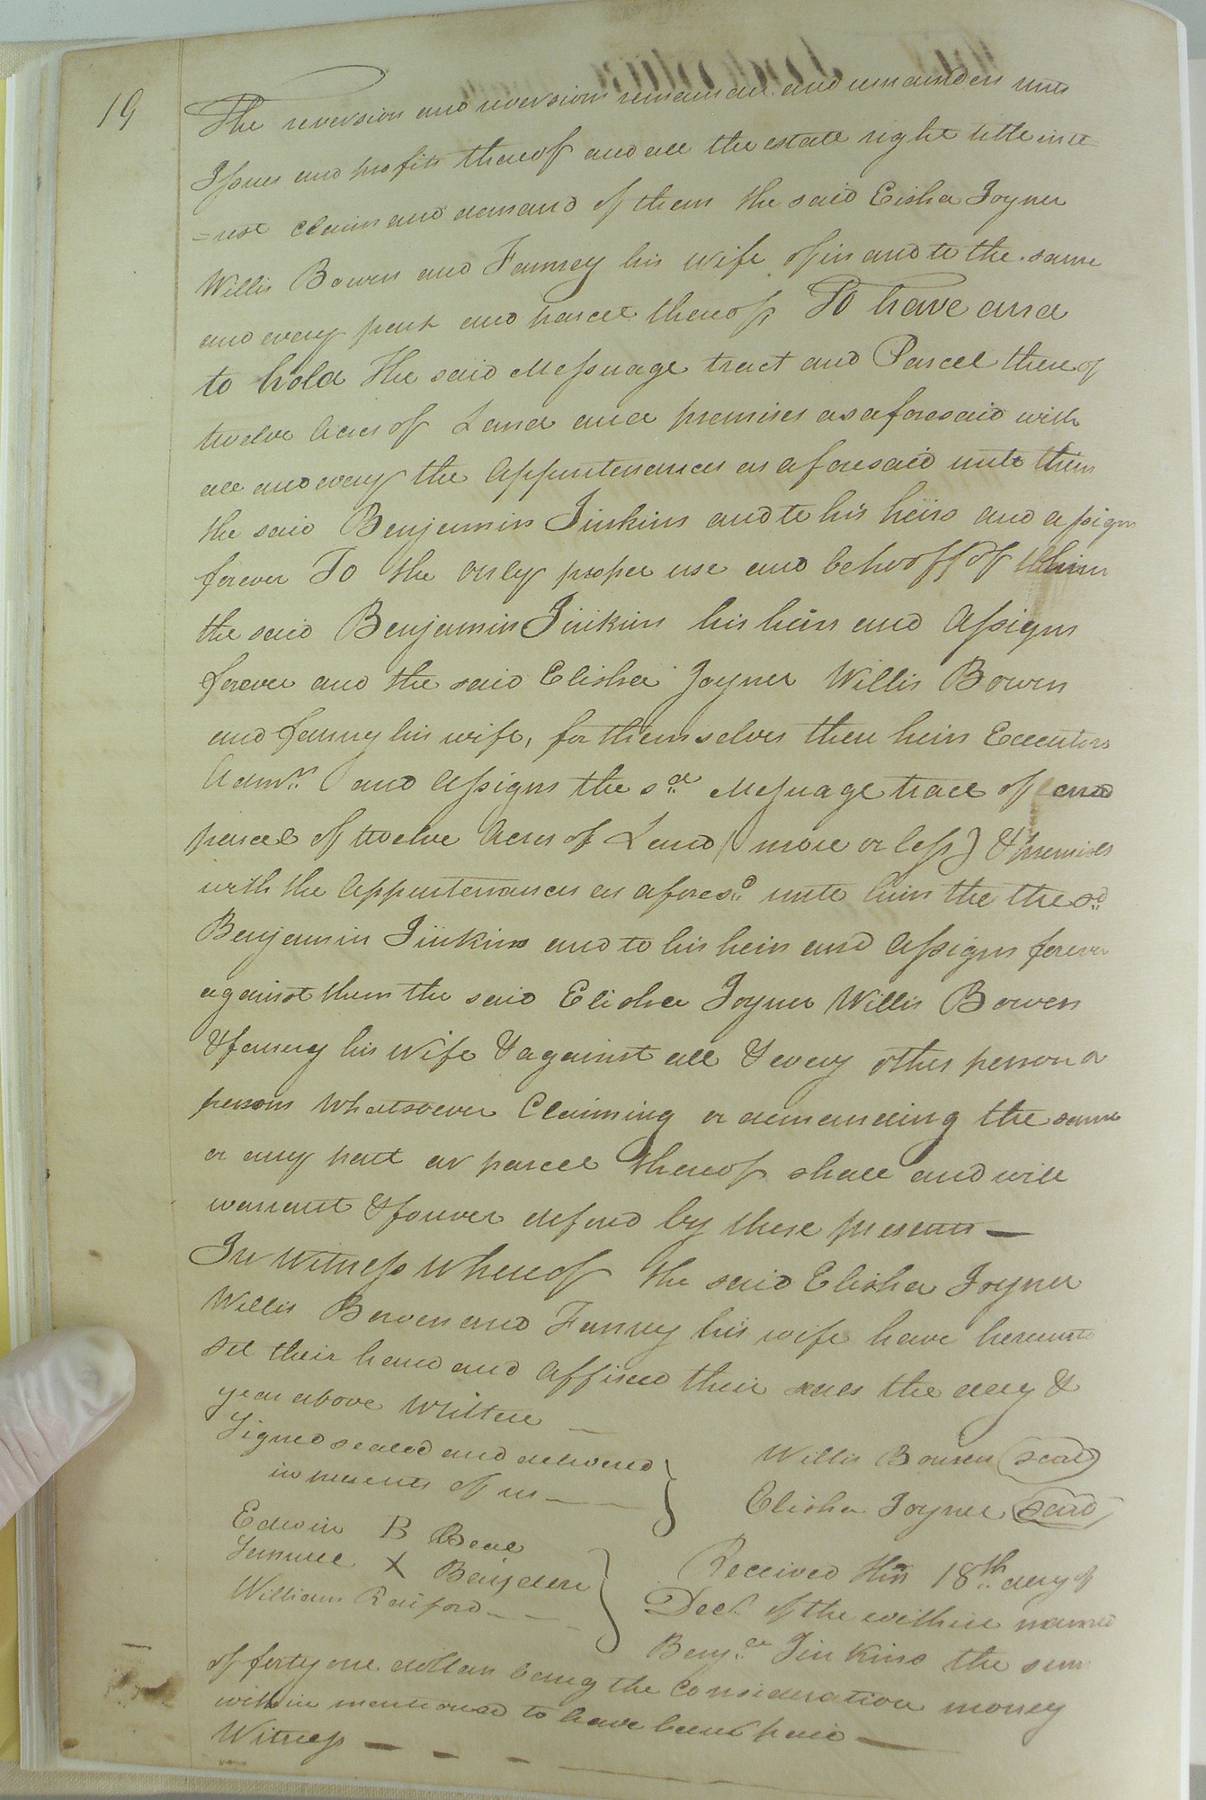 19
The reversion and reversions remainder and remainders rents
Issues and profits thereof and all the estate right title inte=
=rest claim and demand of them the said Eisha Joyner
Willis Bowen and Fanney his wife of in and to the same
and every part and parcel thereof To have and
to hold the said Messuage tract and Parcel there of
twelve Acres of Land and premises as aforesaid with
all and every the Appurtenances as aforesaid unto him
the said Benjamin Jinkins and to his heirs and assigns
forever To the only proper use and behooff of him
the said Benjamin Jinkins his heirs and Assigns
forever and the said Elisha Joyner Willis Bowen
and fanny his wife, for themselves their heirs Executors
Admrs. and Assigns the sd. Messuage trace of and
parcel of twelve Acres of Land (more or less) & premises
with the Appurtenances as aforesd. unto him the the sd.
Benjamin Jinkins and to his heirs and Assigns forever
against them the said Elisha Joyner Willis Bowen
& fanny his Wife & against all & every other person or
persons Whatsoever Claiming or demanding the same
or any part or parcel thereof shall and will
warrant & forever defend by these presents —
In Witness Whereof the said Elisha Joyner
Willis Bowen and Fanny his wife have hereunto
set their hand and affixed their seals the day &
year above Written —
Signed sealed and delivered
in presents of us — — —
Willis Bowen (seal)
Elisha Joyner (seal)
Edwin B Beal
Samuell X Baisden
William Raiford — —
Received this 18th. day of
Decr. of the within named
Benja. Jinkins the sum
of forty one dollars being the Consideration money
within mentioned to have been paid —
Witness — — — —